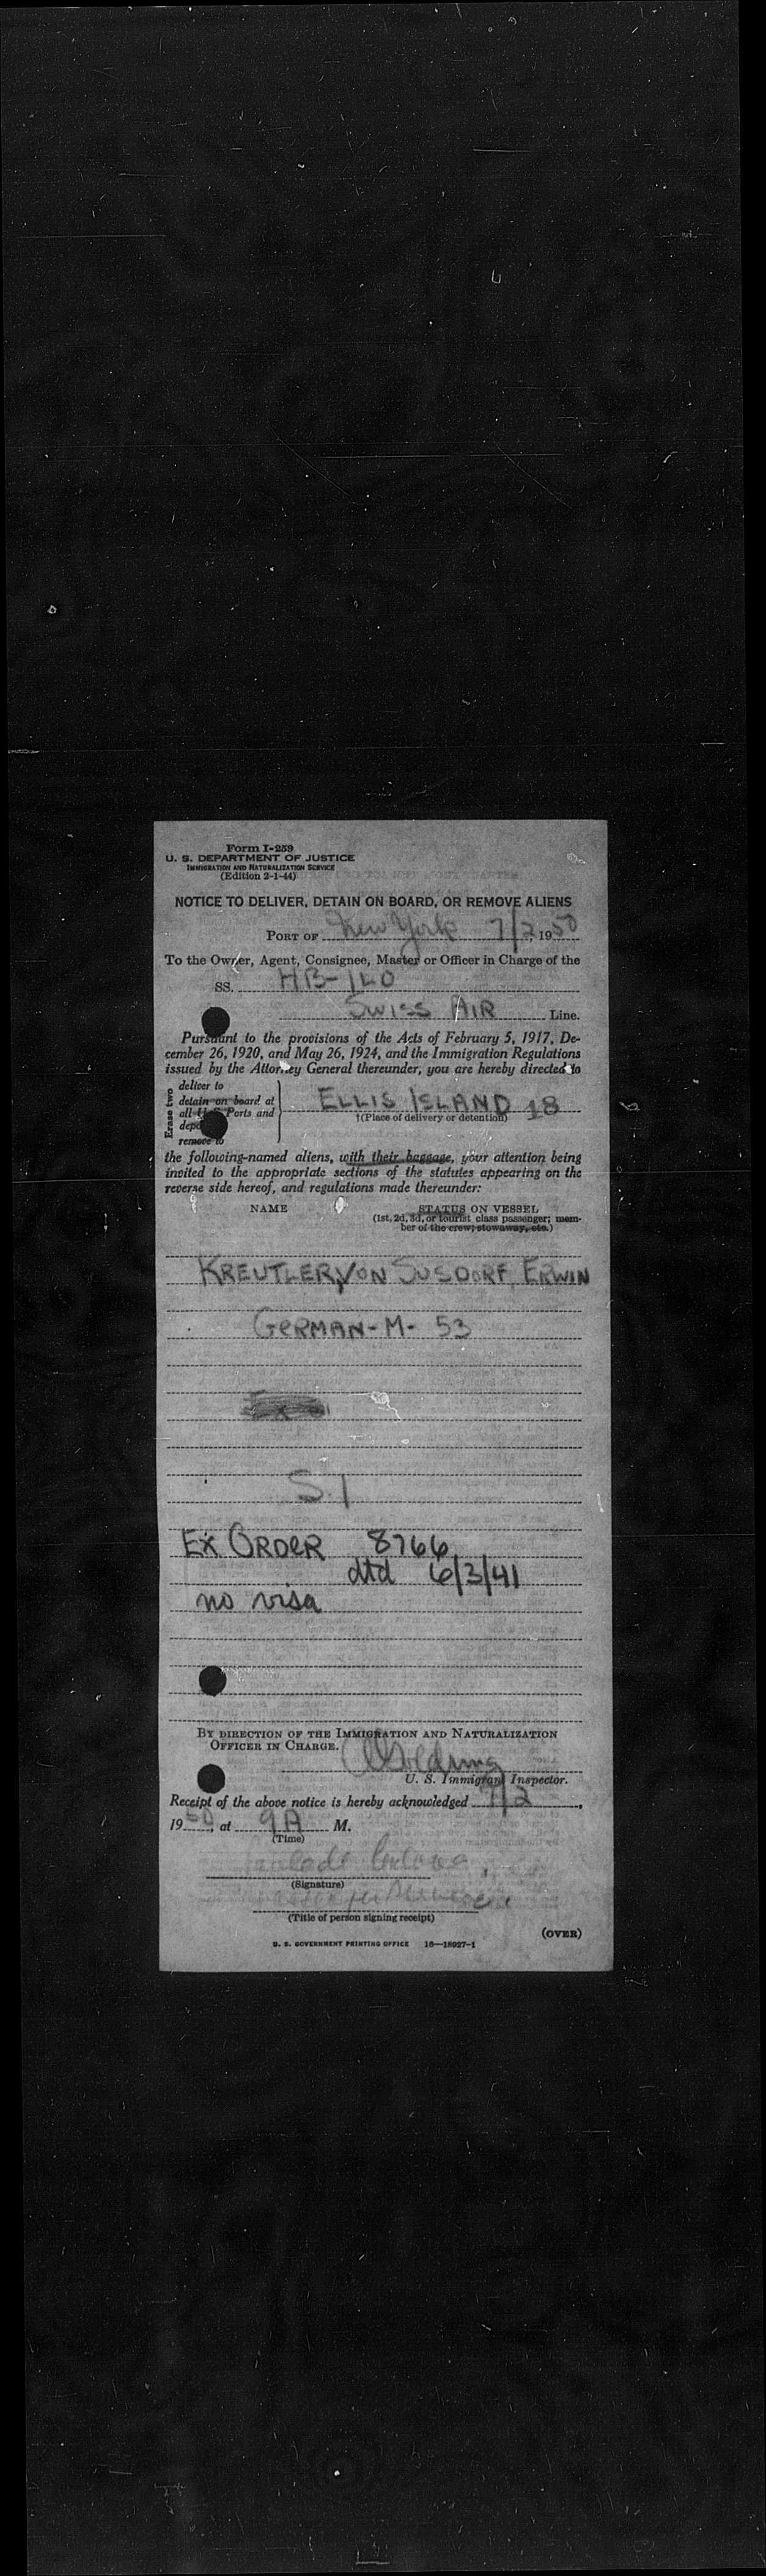 Form I-259
U. S. DEPARTMENT OF JUSTICE
IMMIGRATION AND NATURALIZATION SERVICE
(Edition 2-1-44)
NOTICE TO DELIVER, DETAIN ON BOARD, OR REMOVE ALIENS
PORT OF New York 7/2, 1950
To the Owner, Agent, Consignee, Master or Officer in Charge of the
SS. HB-ILO
SWISS AIR Line.
Pursuant to the provisions of the Acts of February 5, 1917, De-
cember 26, 1920, and May 26, 1924, and the Immigration Regulations
issued by the Attorney General thereunder, you are hereby directed to
Erase two
deliver to
detain on board at
all U. S. Ports and
remove to
ELLIS ISLAND 18
†(Place of delivery or detention)
the following-named aliens, with their baggage, your attention being
invited to the appropriate sections of the statutes appearing on the
reverse side hereof, and regulations made thereunder:
NAME
STATUS ON VESSEL
(1st, 2d, 3d, or tourist class passenger; mem-
ber of the crew; stowaway, etc.)
KREUTLER, VON SUSDORF, ERWIN
GERMAN - M - 53
S.I
EX ORDER 8766
dtd 6/3/41
no visa
BY DIRECTION OF THE IMMIGRATION AND NATURALIZATION
OFFICER IN CHARGE.
U. S. Immigrant Inspector.
Receipt of the above notice is hereby acknowledged 7/2,
1950, at 9 A M.
(Time)
(Signature)
(Title of person signing receipt)
(OVER)
U. S. GOVERNMENT PRINTING OFFICE 16—18927-1